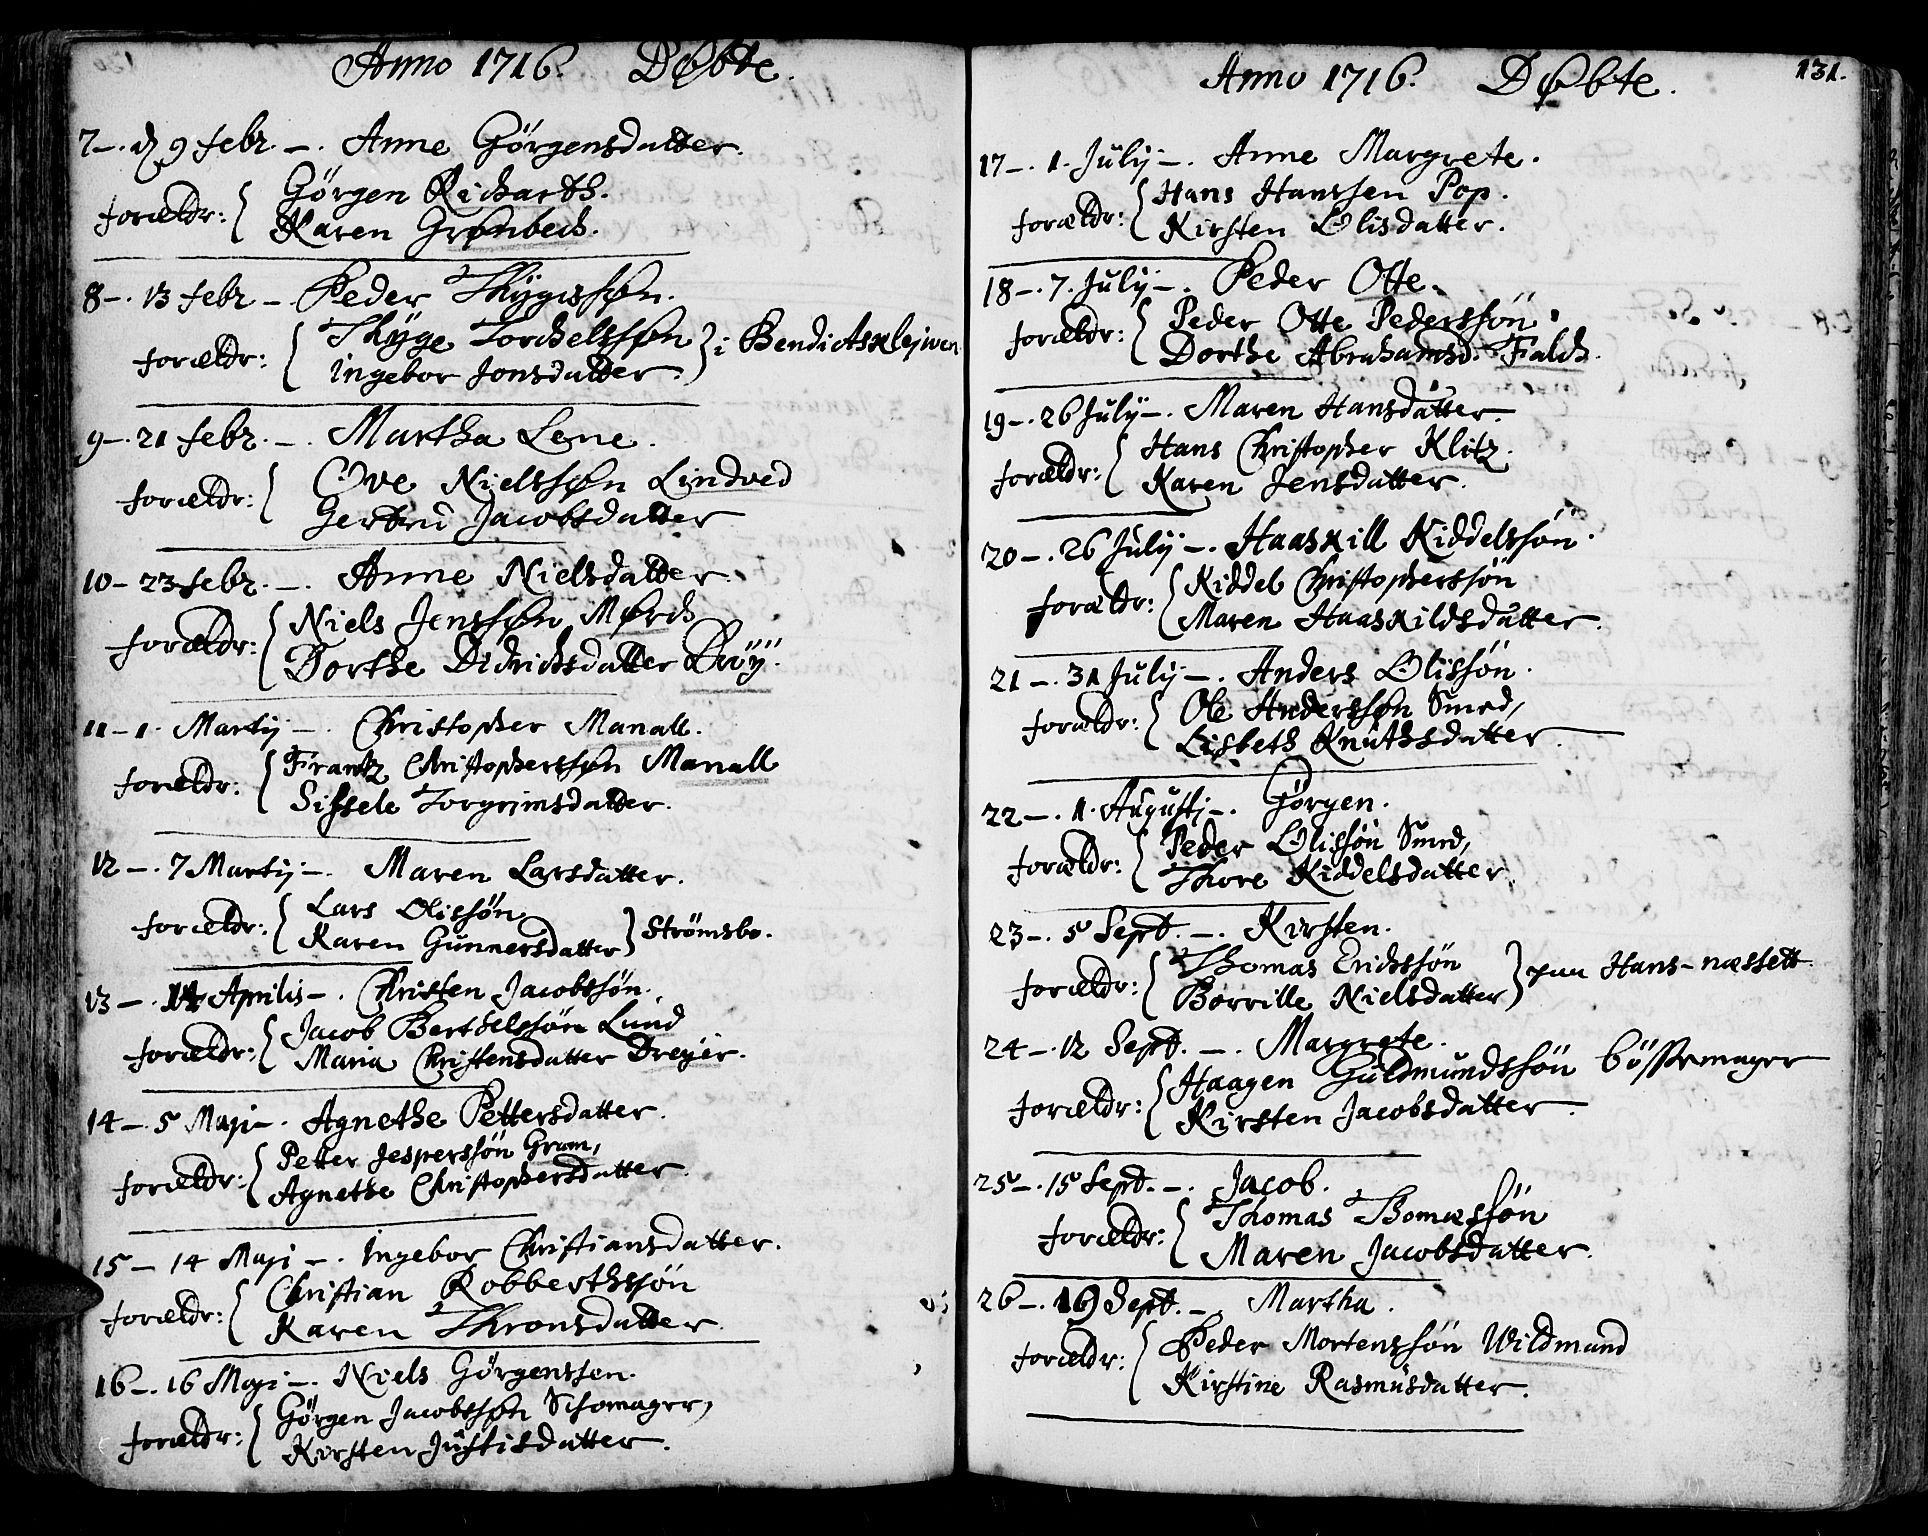 Anno 1716. Døbte.
7 –. d 9 febr. –. Anne Görgensdatter.
forældr: { Görgen Richarth.
Karen Grønbech.
8 –. 13 febr –. Peder Thÿgessøn.
forældr: { Thÿge Torchelssøn } i Bendictsklejwen
Ingebor Jonsdatter.
9 –. 21 febr. –. Martha Lene.
forældr: { Ove Nielssøn Lindved
Gertrud Jacobsdatter
10 – 23 febr. –. Anne Nielsdatter.
forældr: { Niels Jenssøn Mørch
Dorthe Didrichsdatter
11 – 1. Martij –. Christopher Manall.
forældr: { Frantz Christopherssøn Manall
Sissele Torgrimsdatter.
12 –. 7 Martij –. Maren Larsdatter.
forældr: { Lars Olissön
Karen Gunnersdatter } Strömsbo.
13 –. 14 Aprilis –. Christen Jacobssön.
forældr: { Jacob Berthelssön Lund
Maria Christensdatter Dreyer.
14 –. 5 Maji –. Agnethe Pettersdatter.
forældr: { Petter Jesperssön Gram,
Agnethe Christophersdatter.
15 – 14 Maji –. Ingebor Christiansdatter.
forældr: { Christian Robberthssön
Karen Thronsdatter.
16 –. 16 Maji –. Niels Görgenssen.
forældr: { Görgen Jacobssøn Schomager,
Kirsten Justisdatter.
Anno 1716. Døbte. 131.
17 –. 1. Julij –. Anne Margrete.
forældr: { Hans Hanssen Pop.
Kirsten Olisdatter.
18 –. 7. Julij –. Peder Otte.
forældr: { Peder Otte Pederssön.
Dorthe Abrahamsd. Falch.
19 –. 26 Julij –. Maren Hansdatter.
forældr: { Hans Christopher Klitz.
Karen Jensdatter.
20 –. 26 Julij –. Haaskill Kiddelssön.
forældr: { Kiddel Christopherssön
Maren Haaskildsdatter.
21 –. 31 Julij –. Anders Olissön.
forældr: { Ole Anderssøn Smed,
Lisbeth Knuthsdatter.
22 –. 1. Augusti –. Görgen.
forældr: { Peder Olissön Smed,
Thore Kiddelsdatter.
23 –. 5 Sept. –. Kirsten.
forældr: { Thomas Erichssön } paa Hans-næssett.
Borrille Nielsdatter
24 –. 12 Sept. –. Margrete.
forældr: { Haagen Guldmundssön bössemager
Kirsten Jacobsdatter.
25 –. 15 Sept. –. Jacob.
forældr: { Thomas Thomæssön
Maren Jacobsdatter.
26 –. 19 Sept. –. Martha.
forældr: { Peder Mortenssön Wildmand
Kirstine Rasmusdatter.